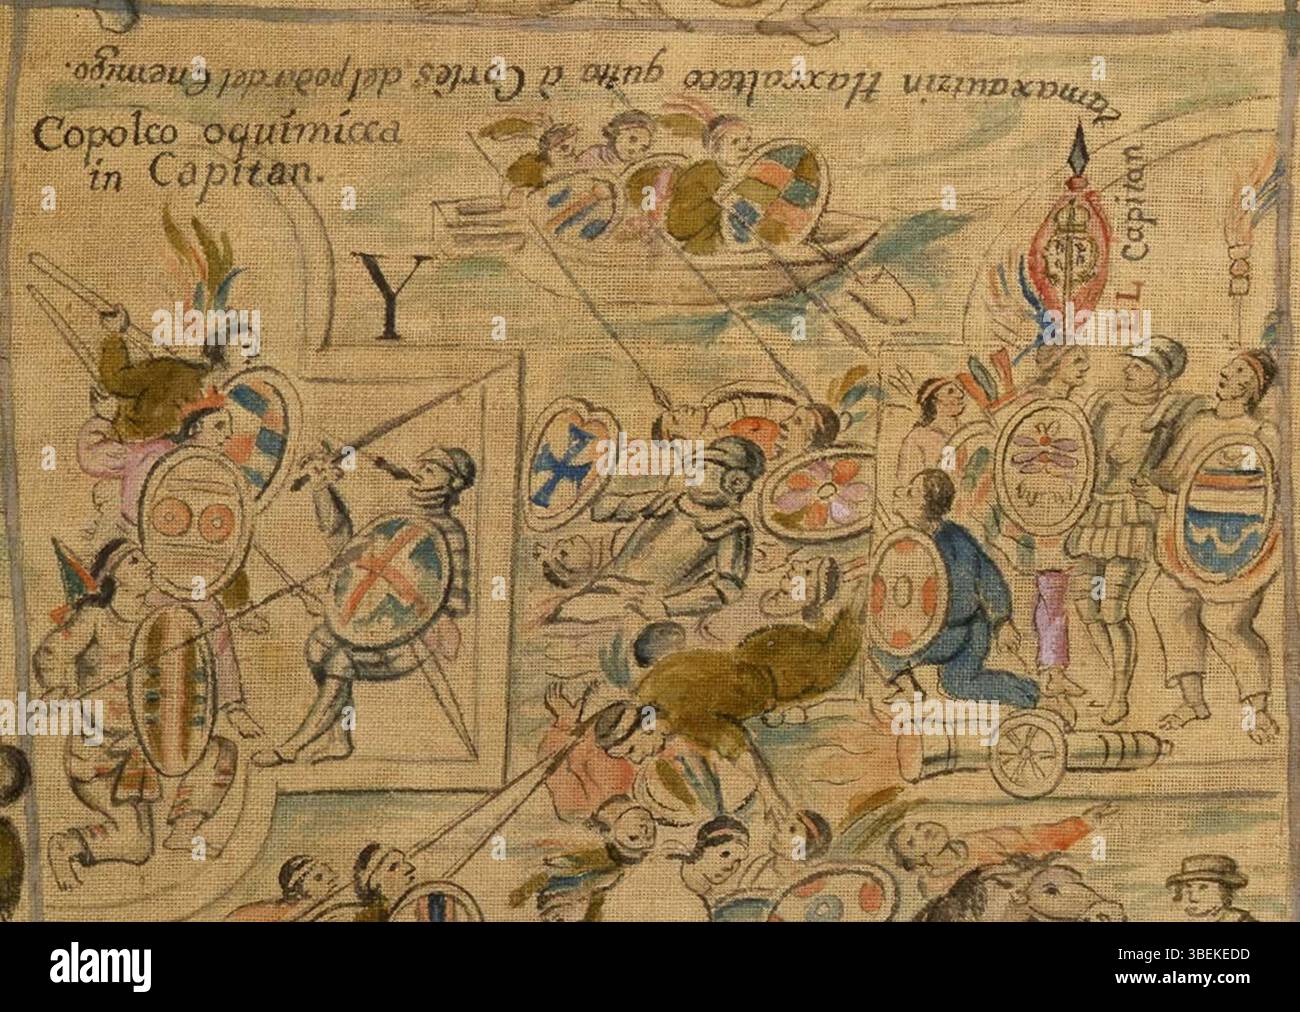 Tamaxautzin tlaxcalteco quita á Cortès del poder del Enemigo.
Copolco oquimicca
in Capitan.
Y
EL Capitan
alamy
Image ID: 3BEKEDD
www.alamy.com